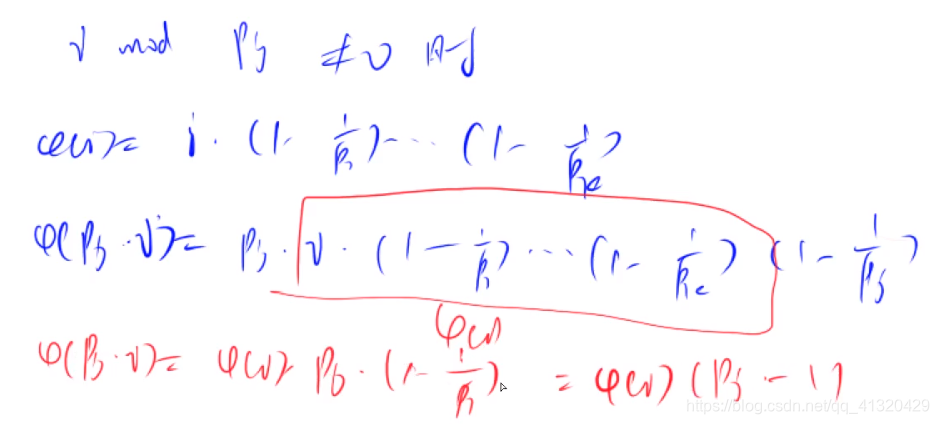 i mod Pj ≠0 时
φ(i)= i · (1- 1/P1)··· (1- 1/Pk)
φ(Pj · i)= Pj · i · (1- 1/P1)···(1- 1/Pk) (1- 1/Pj)
φ(i)
φ(Pj · i)= φ(i) Pj · (1- 1/Pj) = φ(i) (Pj - 1)
https://blog.csdn.net/qq_41320429